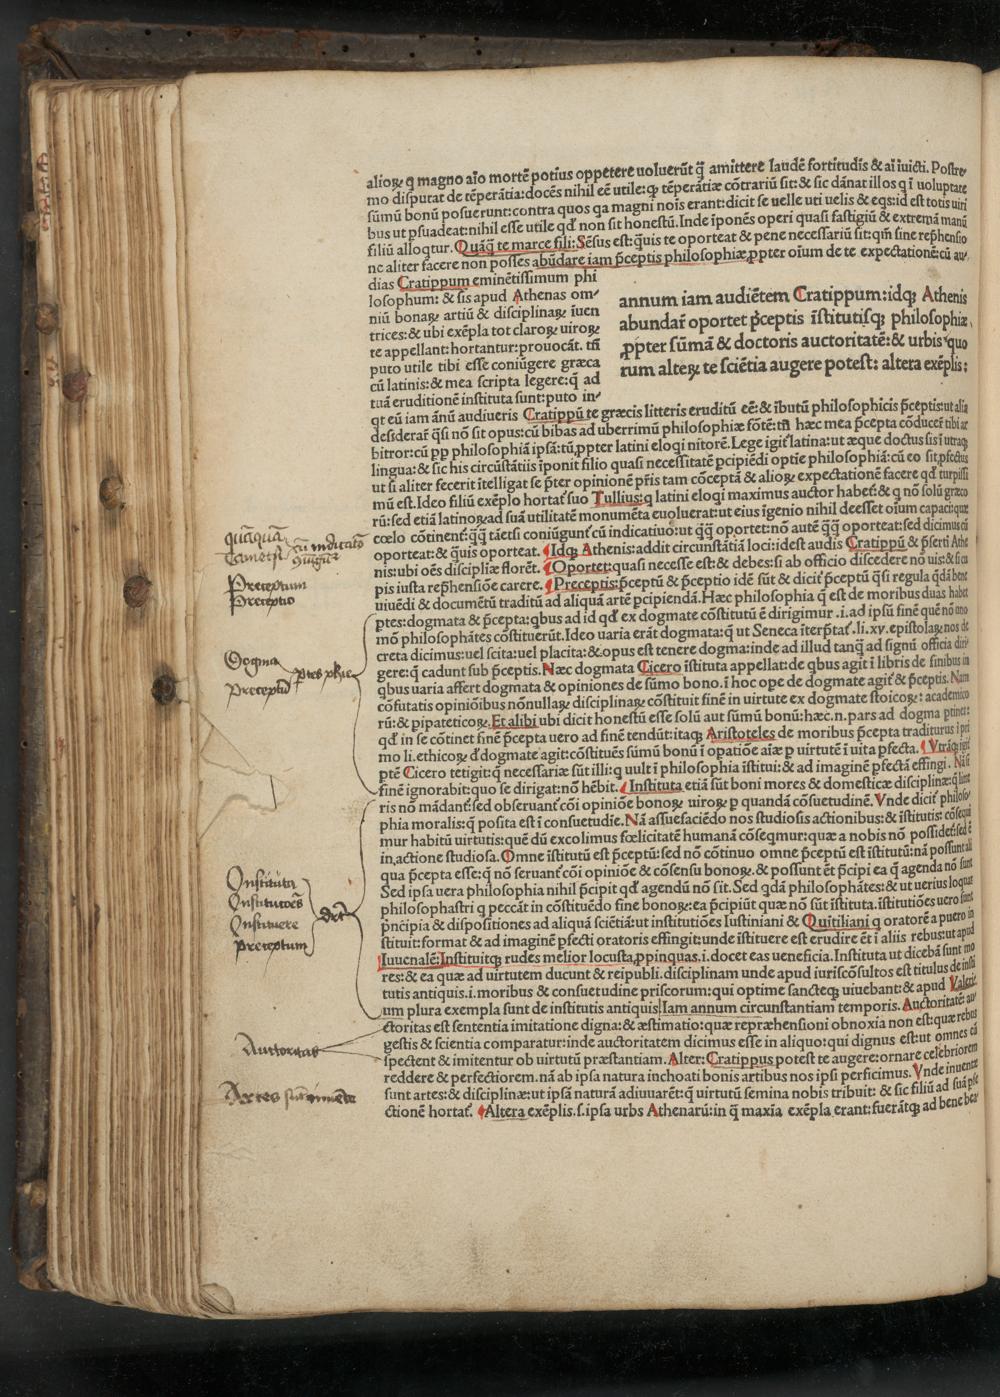 alioꝝ q magno aīo mortē potius oppetere uoluerūt q̄ amittere laudē fortitudīs & aī īuicti. Postre
mo disputat de tēperātia: docēs nihil eē utile: qꝫ tēperātiæ cōtrariū sit: & sic dānat illos q ī uoluptate
sūmū bonū posuerunt: contra quos qa magni noīs erant: dicit se uelle uti uelis & eqs: id est totis uiri
bus ut psuadeat: nihil esse utile qd̄ non sit honestū. Inde īponēs operi quasi fastigiū & extremā manū
filiū alloqtur. Quāq̄ te marce fili: Sēsus est: q̄uis te oporteat & pene necessariū sit: qm̄ sine rep̄hensio
ne aliter facere non posses abūdare iam p̄ceptis philosophiæ, ꝓpter oīum de te expectationē: cū au
dias Cratippum eminētissimum phi
losophum: & sis apud Athenas om
niū bonaꝝ artiū & disciplinaꝝ īuen
trices: & ubi exēpla tot claroꝝ uiroꝝ
te appellant: hortantur: prouocāt. tn̄
puto utile tibi esse coniūgere græca
cū latinis: & mea scripta legere: q̄ ad
tuā eruditionē instituta sunt: puto in
annum iam audiētem Cratippum: idqꝫ Athenis
abundar̄ oportet p̄ceptis īstitutisqꝫ philosophiæ
ꝓpter sūmā & doctoris auctoritatē: & urbis quo
rum alteꝝ te sciētia augere potest: altera exēplis:
qt eū iam ānū audiueris Cratippū te græcis litteris eruditū eē: & ībutū philosophicis p̄ceptis: ut alia
desiderar̄ q̄si nō sit opus: cū bibas ad uberrimū philosophiæ fōtē: tn̄ hæc mea p̄cepta cōducer̄ tibi ar
bitror: cū pp philosophiā ipsā: tū, ꝓpter latini eloqi nitorē. Lege igit̄ latina: ut æque doctus sis ī utraqꝫ
lingua: & sic his circūstātiis īponit filio quasi necessitatē pcipiēdi optie philosophiā: cū eo sit, pfectus
ut si aliter fecerit ītelligat se p̄ter opinionē p̄ris tam cōceptā & alioꝝ expectationē facere qd̄ turpissi
mū est. Ideo filiū exēplo hortat̄ suo Tullius: q latini eloqi maximus auctor habet̄: & q nō solū græco
rū: sed etiā latinoꝝ ad suā utilitatē monumēta euoluerat: ut eius īgenio nihil deesset oīum capaci: quæ
cœlo cōtinent̄: q̄q̄ tāetsi coniūgunt̄ cū indicatiuo: ut q̄q̄ oportet: nō autē q̄q̄ oporteat: sed dicimus cū
oporteat: & q̄uis oporteat. Idqꝫ Athenis: addit circunstātiā loci: idest audis Cratippū & p̄serti Athe
nis: ubi oēs discipliæ florēt. Oportet: quasi necesse est: & debes: si ab officio discedere nō uis: & si cu
pis iusta rep̄hensiōe carere. Preceptis: p̄ceptū & p̄ceptio idē sūt & dicit̄ p̄ceptū q̄si regula qdā bene
uiuēdi & documētū traditū ad aliquā artē pcipiendā. Hæc philosophia q̄ est de moribus duas habet
ptes: dogmata & p̄cepta: qbus ad id qd̄ ex dogmate cōstitutū ē dirigimur .i. ad ipsū finē quē nō uno
mō philosophātes cōstituerūt. Ideo uaria erāt dogmata: q̄ ut Seneca īterp̄tat̄ .li. xv. epistolaꝝ nos de
creta dicimus: uel scita: uel placita: & opus est tenere dogma: inde ad illud tanq̄ ad signū officia diri
gere: q̄ cadunt sub p̄ceptis. Næc dogmata Cicero īstituta appellat: de qbus agit ī libris de finibus in
qbus uaria affert dogmata & opiniones de sūmo bono. ī hoc ope de dogmate agit̄ & p̄ceptis. Nam
cōfutatis opiniōibus nōnullaꝝ disciplinaꝝ cōstituit finē in uirtute ex dogmate stoicoꝝ: academico
rū: & pipateticoꝝ. Et alibi ubi dicit honestū esse solū aut sūmū bonū: hæc .n. pars ad dogma ptinet:
qd̄ in se cōtinet finē p̄cepta uero ad finē tendūt: itaqꝫ Aristoteles de moribus p̄cepta traditurus ī pri
mo li. ethicoꝝ d̄ dogmate agit: cōstituēs sūmū bonū ī opatiōe aīæ p uirtutē ī uita pfecta. Vtrāqꝫ igit̄
ptē Cicero tetigit: q̄ necessariæ sūt illi: q uult ī philosophia īstitui: & ad imaginē pfectā effingi. Nā si
finē ignorabit: quo se dirigat: nō hēbit. Instituta etiā sūt boni mores & domesticæ disciplinæ: q̄ litte
ris nō mādant̄: sed obseruant̄ cōi opiniōe bonoꝝ uiroꝝ p quandā cōsuetudinē. Vnde dicit̄ philoso
phia moralis: q̄ posita est ī consuetudīe. Nā assuefaciēdo nos studiosis actionibus: & īstitutis: cōsequi
mur habitū uirtutis: quē dū excolimus fœlicitatē humanā cōseqmur: quæ a nobis nō possidet̄: sed ē
in, actione studiosa. Omne īstitutū est p̄ceptū: sed nō cōtinuo omne p̄ceptū est īstitutū: nā possunt ali
qua p̄cepta esse: q̄ nō seruant̄ cōi opiniōe & cōsensu bonoꝝ. & possunt ēt p̄cipi ea q̄ agenda nō sunt
Sed ipsa uera philosophia nihil p̄cipit qd̄ agendū nō sit. Sed qdā philosophātes: & ut uerius loquar
philosophastri q peccāt in cōstituēdo fine bonoꝝ: ea p̄cipiūt quæ nō sūt īstituta. īstitutiōes uero sunt
p̄ncipia & dispositiones ad aliquā sciētiā: ut institutiōes Iustiniani & Quītiliani q oratorē a puero in
stituit: format & ad imaginē pfecti oratoris effingit: unde īstituere est erudire ēt ī aliis rebus: ut apud
Iuuenalē: Instituitqꝫ rudes melior locusta, ppinquas. i. docet eas ueneficia. Instituta ut dicebā sunt mo
res: & ea quæ ad uirtutem ducunt & reipubli. disciplinam unde apud iuriscōsultos est titulus de īsti
tutis antiquis .i. moribus & consuetudine priscorum: qui optime sancteqꝫ uiuebant: & apud Valeri
um plura exempla sunt de institutis antiquis. Iam annum circunstantiam temporis. Auctoritatē: au
ctoritas est sententia imitatione digna: & æstimatio: quæ repræhensioni obnoxia non est: quæ rebus
gestis & scientia comparatur: inde auctoritatem dicimus esse in aliquo: qui dignus est: ut omnes eū
spectent & imitentur ob uirtutū præstantiam. Alter: Cratippus potest te augere: ornare celebriorem
reddere & perfectiorem. nā ab ipsa natura inchoati bonis artibus nos ipsi perficimus. Vnde inuentæ
sunt artes: & disciplinæ: ut ipsā naturā adiuuarēt: q̄ uirtutū semina nobis tribuit: & sic filiū ad suā pfe
ctionē hortat̄. Altera exēplis. s. ipsa urbs Athenarū: in q̄ maxīa exēpla erant: fuerātqꝫ ad bene bea
quāquā
Tametsi
cū indicatīo
Preceptum
Preceptio
Dogma
Preceptū
ptes phie
Instituta
Institutōes
Instituere
Preceptum
Auctoritas
Artes